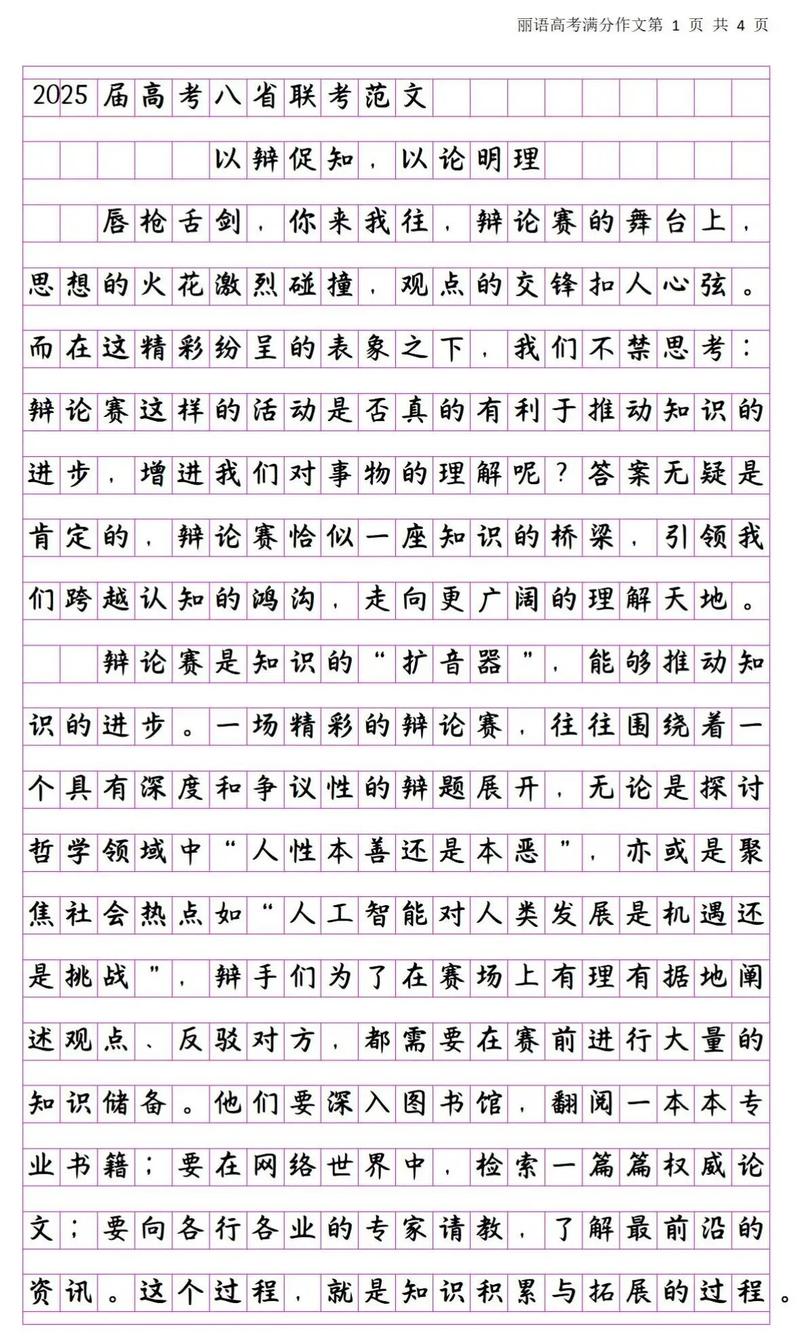 丽语高考满分作文第 1 页 共 4 页
2025 届高考八省联考范文
以辩促知，以论明理
唇枪舌剑，你来我往，辩论赛的舞台上，
思想的火花激烈碰撞，观点的交锋扣人心弦。
而在这精彩纷呈的表象之下，我们不禁思考：
辩论赛这样的活动是否真的有利于推动知识的
进步，增进我们对事物的理解呢？答案无疑是
肯定的，辩论赛恰似一座知识的桥梁，引领我
们跨越认知的鸿沟，走向更广阔的理解天地。
辩论赛是知识的“扩音器”，能够推动知
识的进步。一场精彩的辩论赛，往往围绕着一
个具有深度和争议性的辩题展开，无论是探讨
哲学领域中“人性本善还是本恶”，亦或是聚
焦社会热点如“人工智能对人类发展是机遇还
是挑战”，辩手们为了在赛场上有理有据地阐
述观点、反驳对方，都需要在赛前进行大量的
知识储备。他们要深入图书馆，翻阅一本本专
业书籍；要在网络世界中，检索一篇篇权威论
文；要向各行各业的专家请教，了解最前沿的
资讯。这个过程，就是知识积累与拓展的过程。